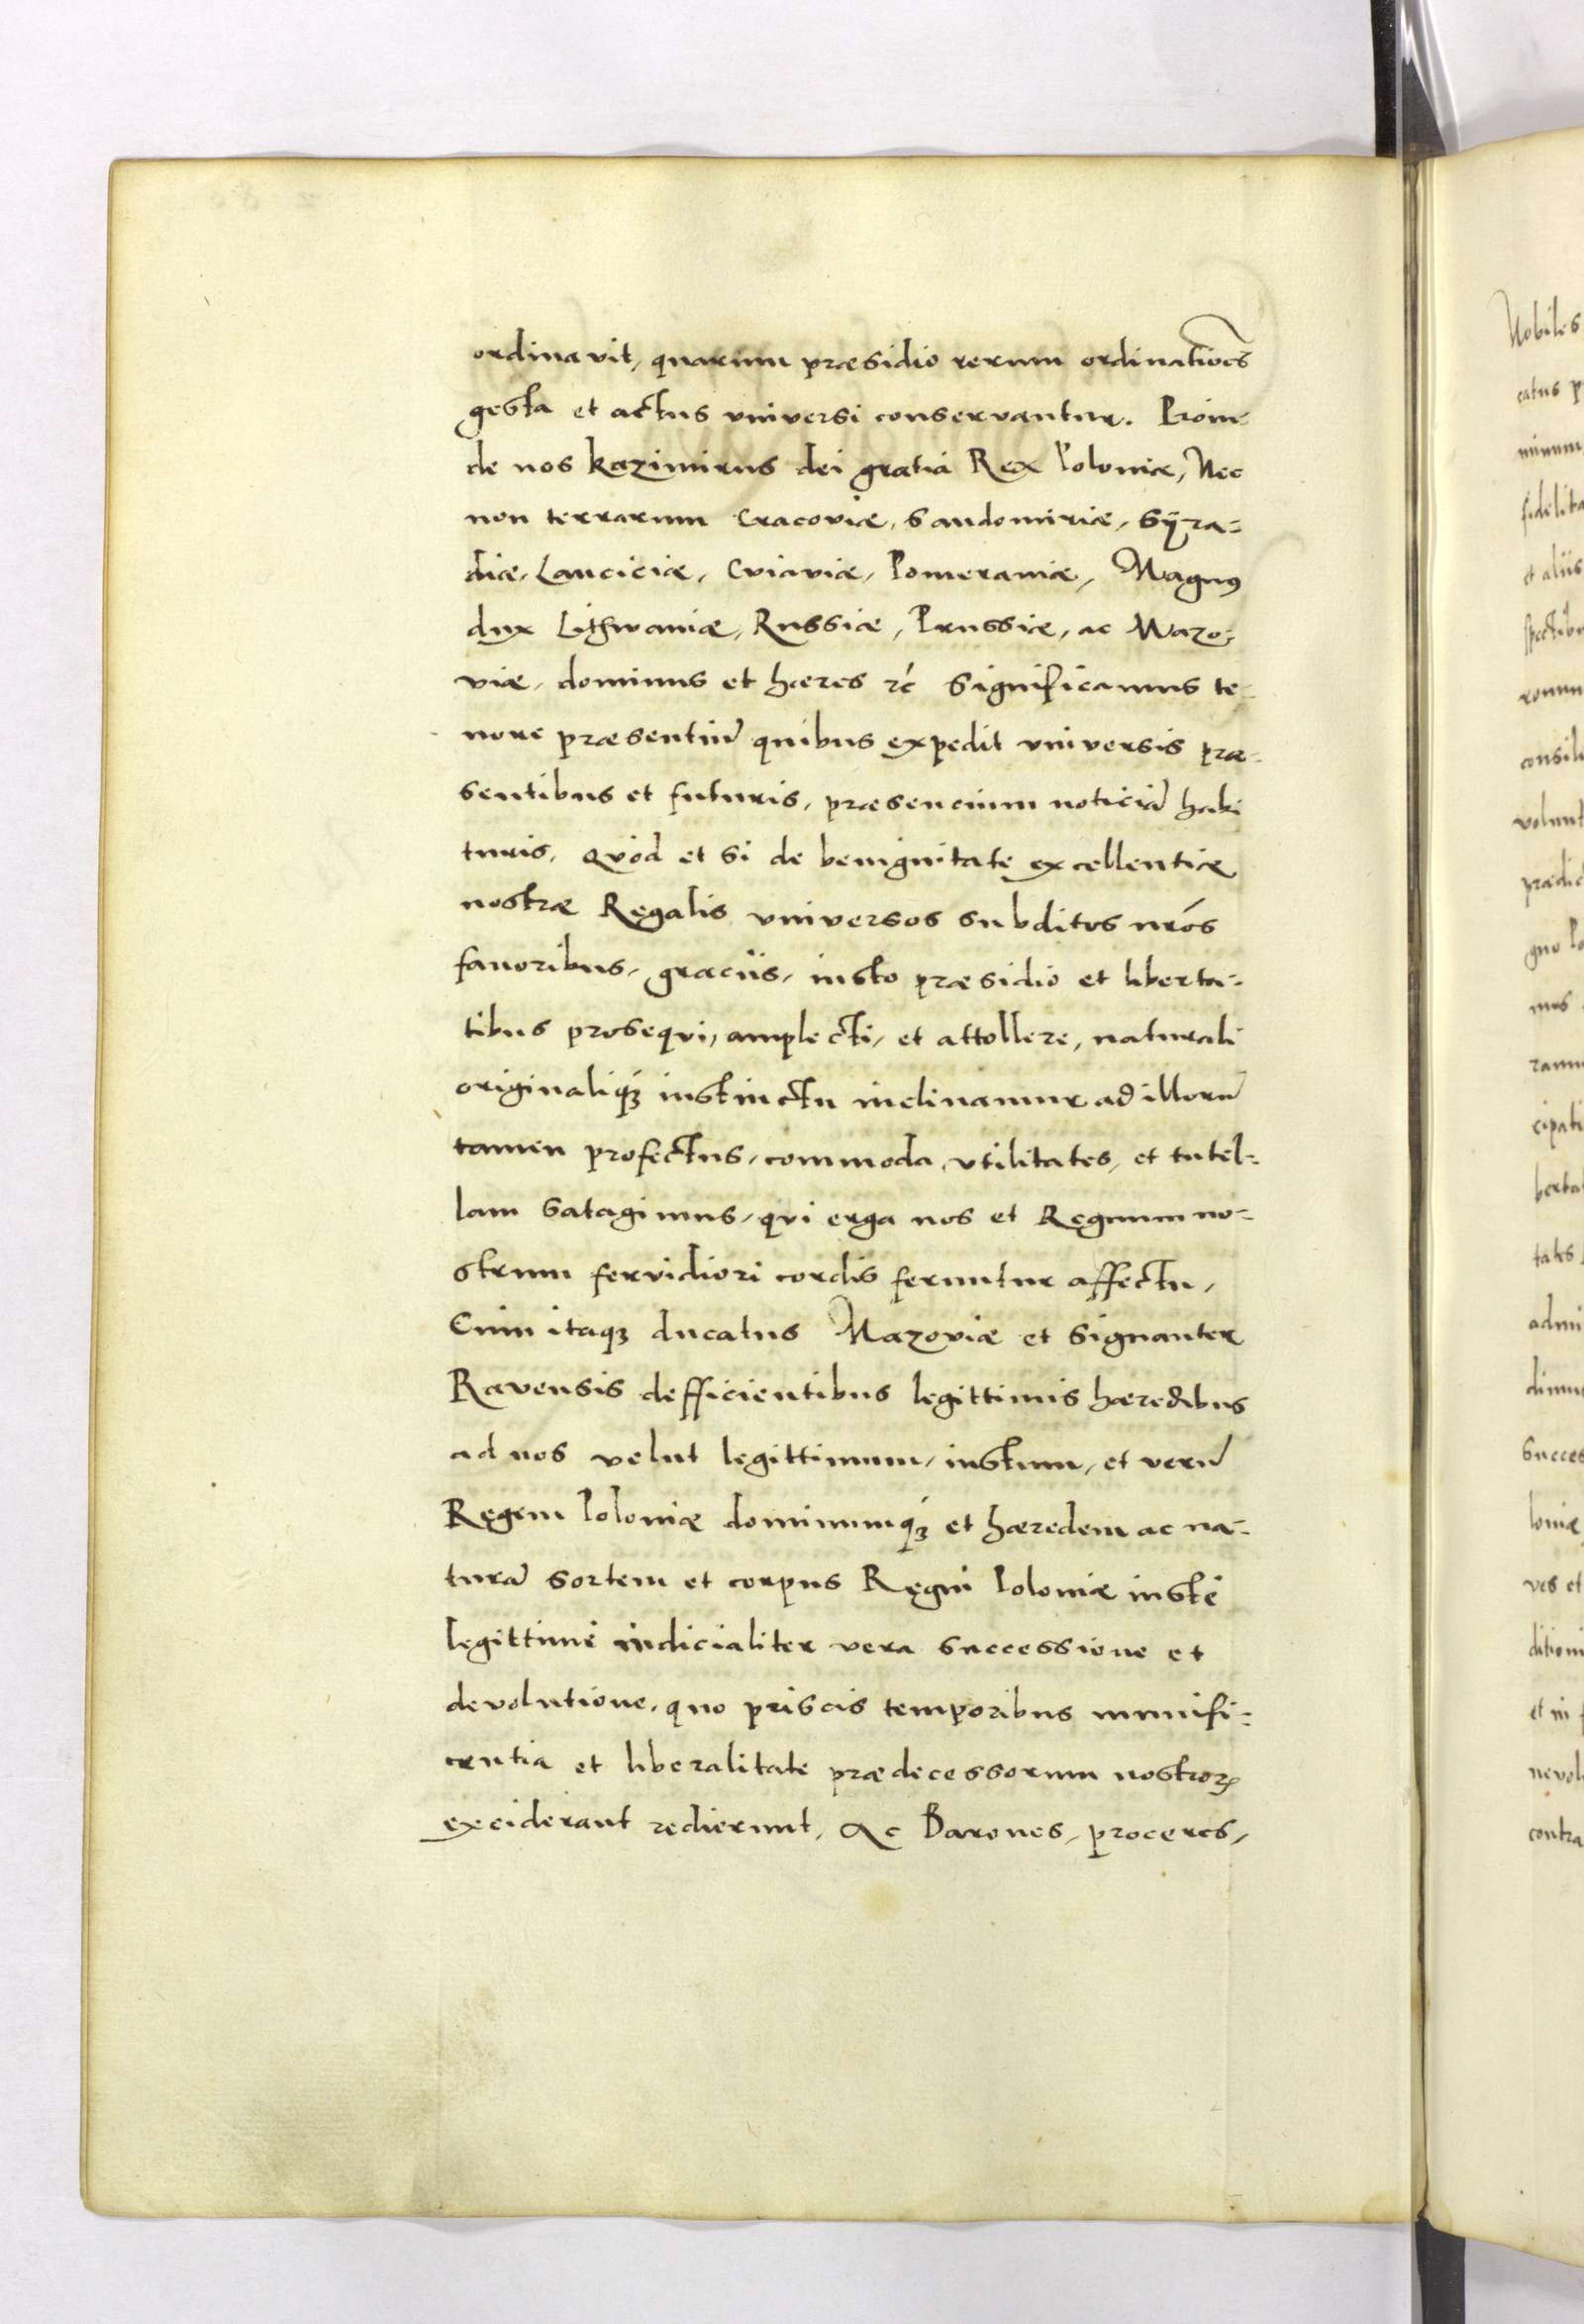 ordinavit, quarum præsidio rerum ordinatiões
gesta et actus universi conservantur. Proin-
de nos Kazimirus dei gratia Rex Poloniæ, Nec
non terrarum Cracoviæ, Sandomiriæ, Syra-
diæ, Lanciciæ, Cviaviæ, Pomeraniæ, Magnus
dux Lithwaniæ, Russiæ, Prussiæ, ac Mazo-
viæ, dominus et hæres &c̃ Significamus te-
nore præsentiũ quibus expedit universis præ-
sentibus et futuris, præsencium noticiã habi
turis, Qvod et si de benignitate excellentiæ
nostræ Regalis universos subditos nr̃os
favoribus, graciis, iusto præsidio et liberta-
tibus proseqvi, amplecti, et attollere, naturali
originaliqꝫ instinctu inclinamur ad illorũ
tamen profectus, commoda, vtilitates, et tutel-
lam satagimus, qvi erga nos et Regnum no-
strum fervidiori cordis feruntur affectu,
Cum itaqꝫ ducatus Mazoviæ et signanter
Ravensis defficientibus legittimis hæredibus
ad nos velut legittimum, iustum, et verũ
Regem Poloniæ dominumqꝫ et hæredem ac na-
turã sortem et corpus Regni Poloniæ iustè
legittimè iudicialiter vera successione et
devolutione, quo priscis temporibus munifi-
centia et liberalitate prædecessorum nostroꝝ
exciderant redierunt, Ac Barones, proceres,
Nobiles
catus p
fidelita
et aliis
consili
volunt
prædic
tales
Succes
loniæ
ves et
et in f
contra